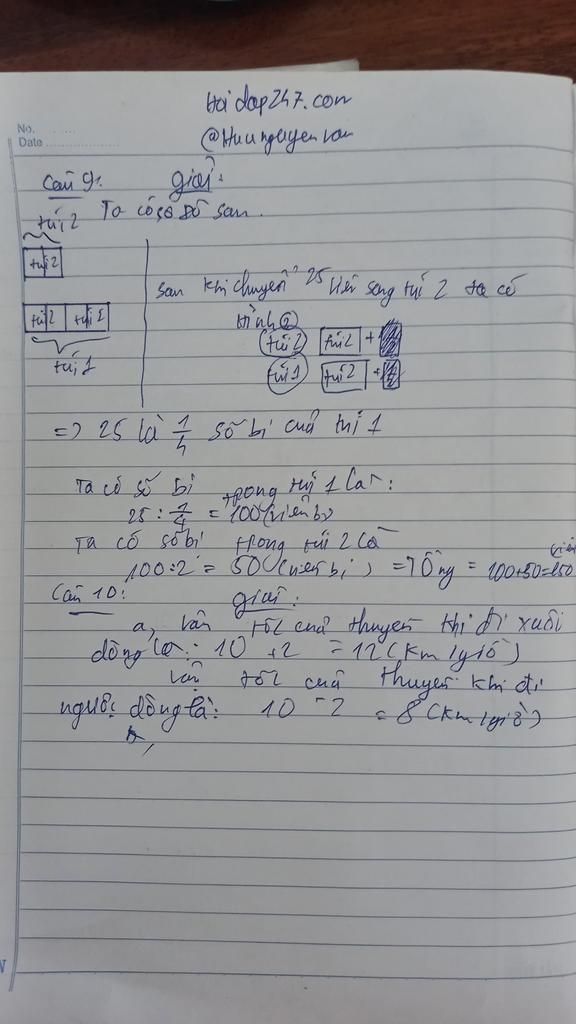 Hoidap247.com
@Huunguyenvan
No. ........
Date .....................
Câu 9:
giải:
túi 2 Ta có sơ đồ sau.
túi 2
túi 2 túi 2
túi 1
sau khi chuyển 25 viên sang túi 2 ta có
hình ②
túi 2 túi 2 +
túi 1 túi 2 +
=> 25 là 1/4 số bi của túi 1
Ta có số bi trong túi 1 là:
25 : 1/4 = 100 (viên bi)
Ta có số bi trong túi 2 là
100 : 2 = 50 (viên bi) => Tổng = 100+50=150 (viên)
Câu 10:
giải:
a, vận tốc của thuyền khi đi xuôi
dòng là: 10 + 2 = 12 (km/giờ)
vận tốc của thuyền khi đi
ngược dòng là: 10 - 2 = 8 (km/giờ)